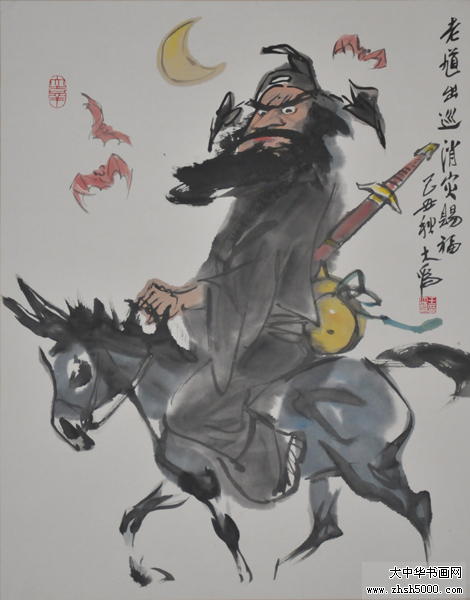 老馗出巡 消灾賜福
己丑秋 大為
大中华书画网
www.zhsh5000.com